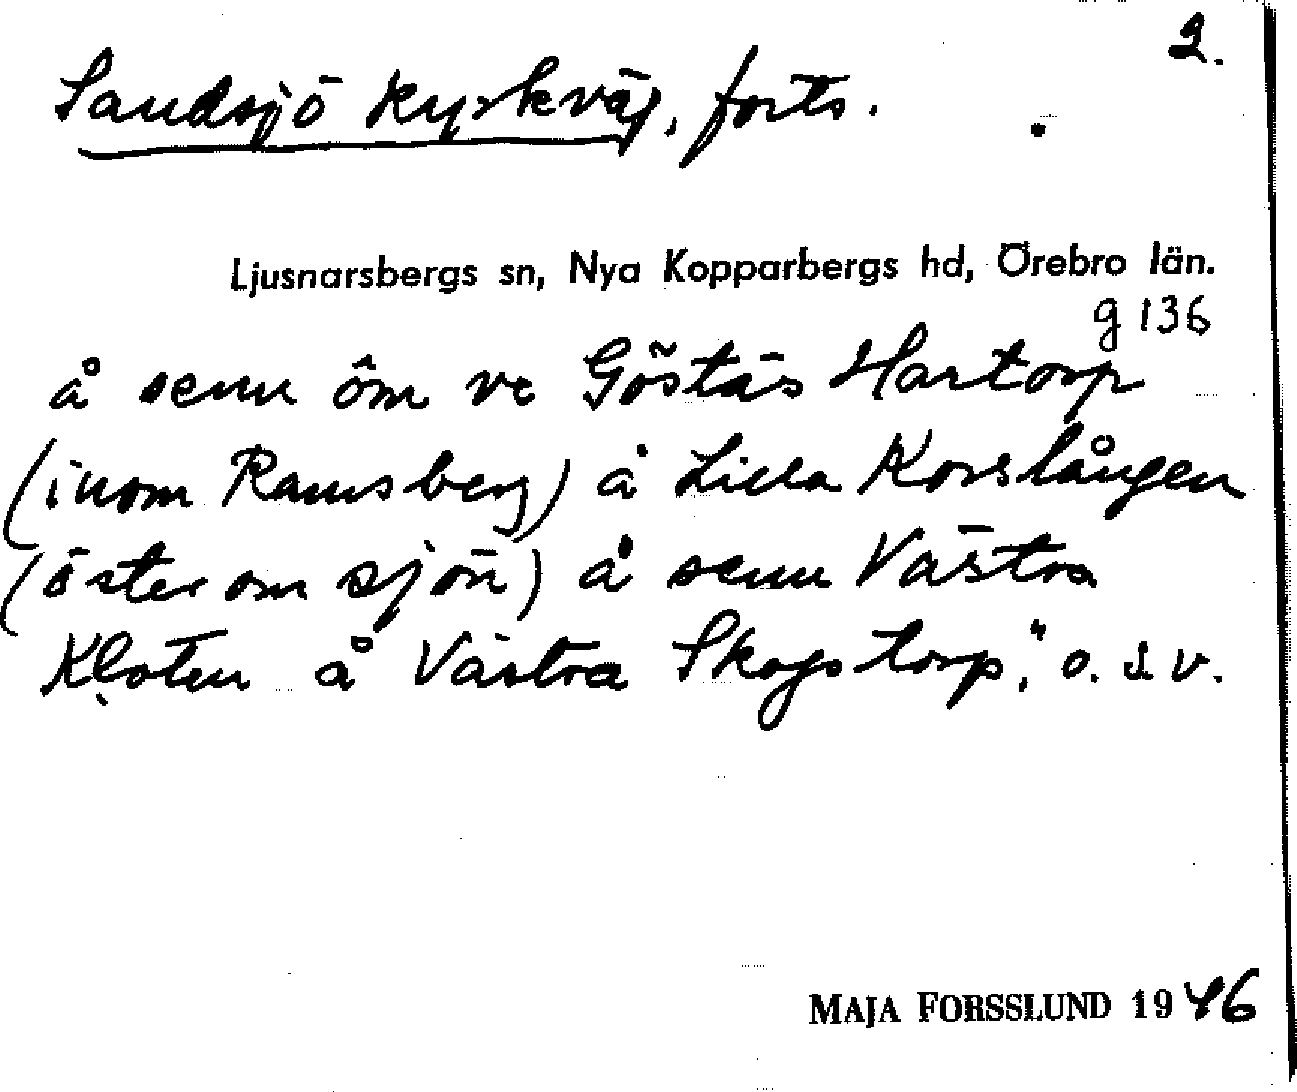 2.
Sandsjö Kyrkväg, forts.
Ljusnarsbergs sn, Nya Kopparbergs hd, Örebro län.
g 136
å senn öm ve Göstäs Hartorp
(inom Ramsberg) å Lilla Korslången
(öster om sjön) å senn Västra
Kloten å Västra Skogstorp," o.s.v.
MAJA FORSSLUND 1946